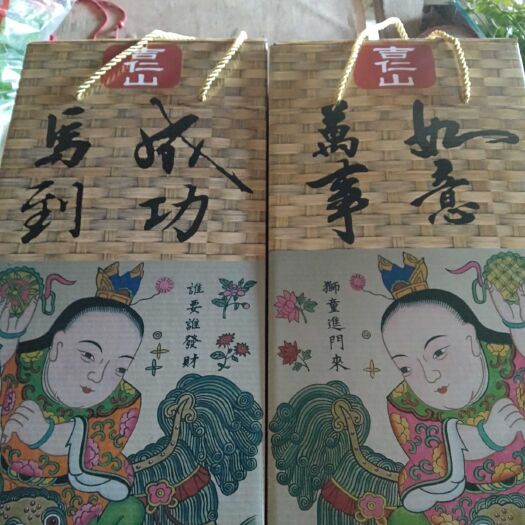 吉仁山
馬到
成功
誰要誰發財
吉仁山
萬事
如意
獅童進門來